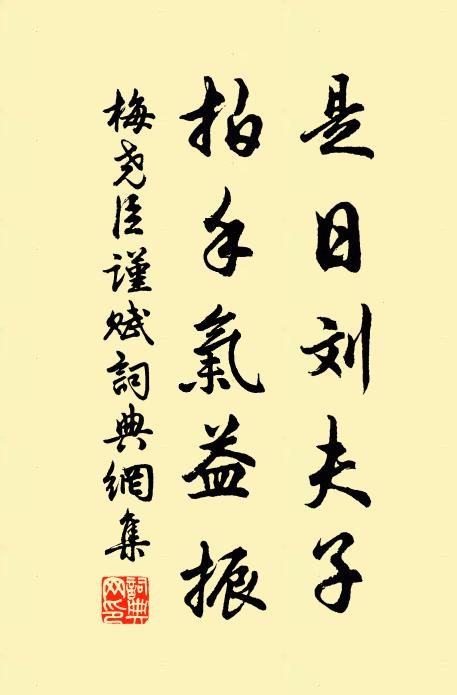 是日刘夫子
拍手氣益振
梅尧臣謹赋詞典網集
詞典网印